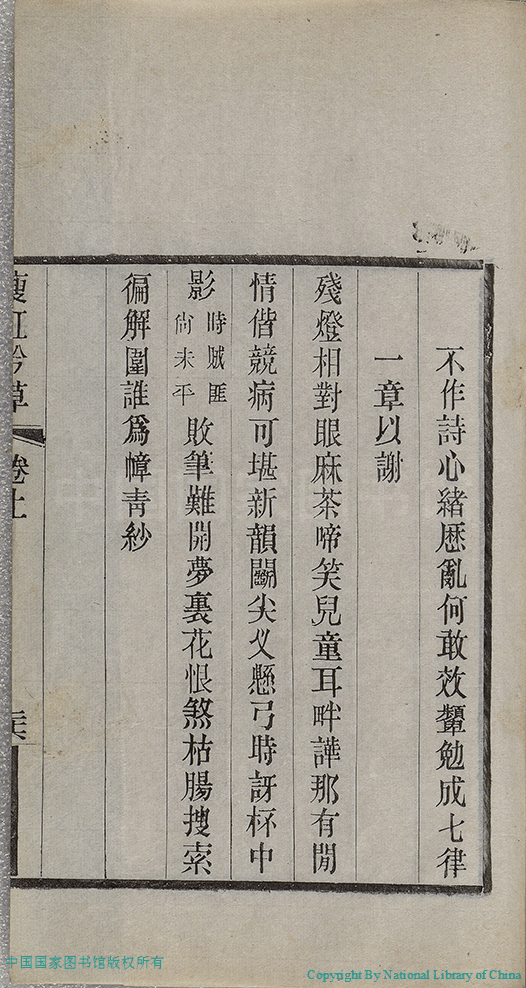 不作詩心緒歷亂何敢效顰勉成七律
一章以謝
殘燈相對眼麻茶啼笑兒童耳畔譁那有閒
情偕競病可堪新韻鬭尖义懸弓時訝杯中
影時賊匪尙未平敗筆難開夢裏花恨煞枯腸搜索
徧解圍誰爲幛靑紗
瘦紅吟草
卷上
中国国家图书馆版权所有
Copyright By National Library of China